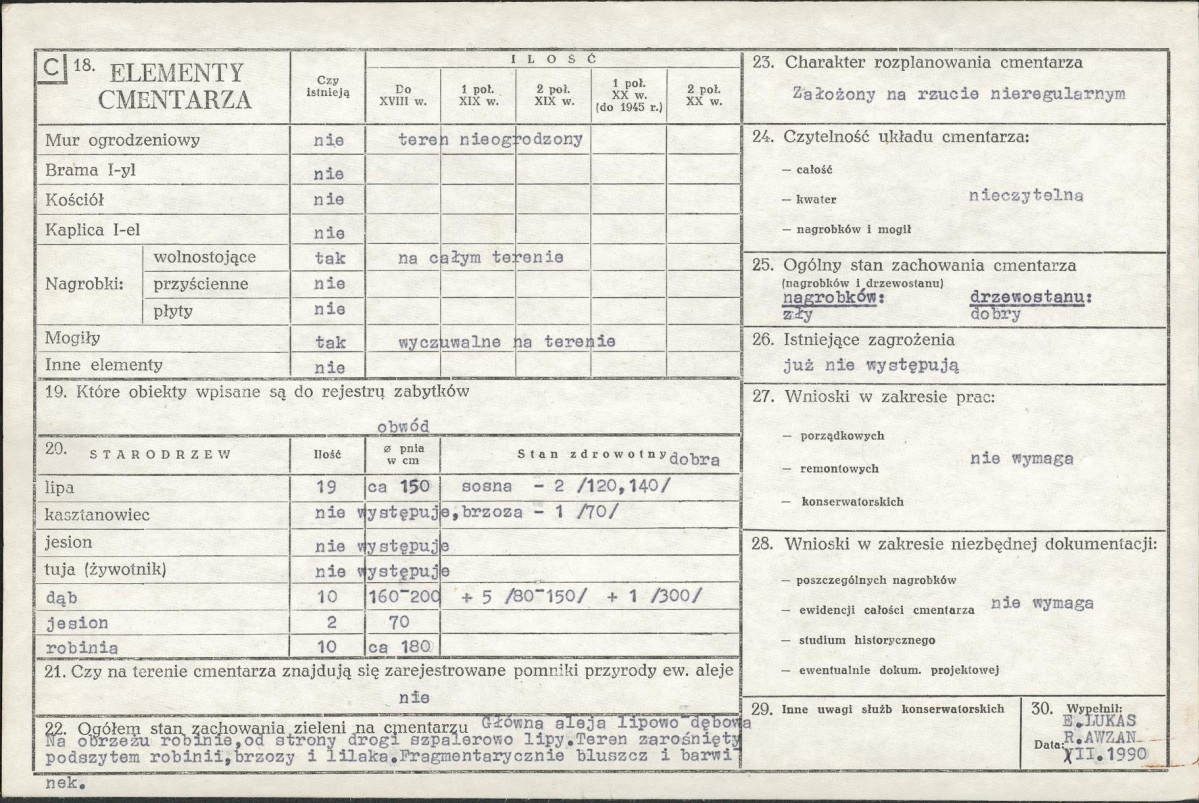 C 18. ELEMENTY CMENTARZA
Czy istnieją
ILOŚĆ
Do XVIII w.
1 poł. XIX w.
2 poł. XIX w.
1 poł. XX w. (do 1945 r.)
2 poł. XX w.
Mur ogrodzeniowy nie teren nieogrodzony
Brama I-yl nie
Kościół nie
Kaplica I-el nie
Nagrobki:
wolnostojące tak na całym terenie
przyścienne nie
płyty nie
Mogiły tak wyczuwalne na terenie
Inne elementy nie
19. Które obiekty wpisane są do rejestru zabytków
obwód
20. STARODRZEW Ilość ø pnia w cm Stan zdrowotny dobra
lipa 19 ca 150 sosna - 2 /120,140/
kasztanowiec nie występuje, brzoza - 1 /70/
jesion nie występuje
tuja (żywotnik) nie występuje
dąb 10 160-200 + 5 /80-150/ + 1 /300/
jesion 2 70
robinia 10 ca 180
21. Czy na terenie cmentarza znajdują się zarejestrowane pomniki przyrody ew. aleje
nie
22. Ogółem stan zachowania zieleni na cmentarzu Główna aleja lipowo-dębowa
Na obrzeżu robinie, od strony drogi szpalerowo lipy. Teren zarośnięty
podszytem robinii, brzozy i lilaka. Fragmentarycznie bluszcz i barwi
nek.
23. Charakter rozplanowania cmentarza
Założony na rzucie nieregularnym
24. Czytelność układu cmentarza:
– całość
– kwater nieczytelna
– nagrobków i mogił
25. Ogólny stan zachowania cmentarza
(nagrobków i drzewostanu)
nagrobków: drzewostanu:
zły dobry
26. Istniejące zagrożenia
już nie występują
27. Wnioski w zakresie prac:
– porządkowych
nie wymaga
– remontowych
– konserwatorskich
28. Wnioski w zakresie niezbędnej dokumentacji:
– poszczególnych nagrobków
– ewidencji całości cmentarza nie wymaga
– studium historycznego
– ewentualnie dokum. projektowej
29. Inne uwagi służb konserwatorskich
30. Wypełnił:
E.LUKAS
R.AWZAN
Data: XII.1990